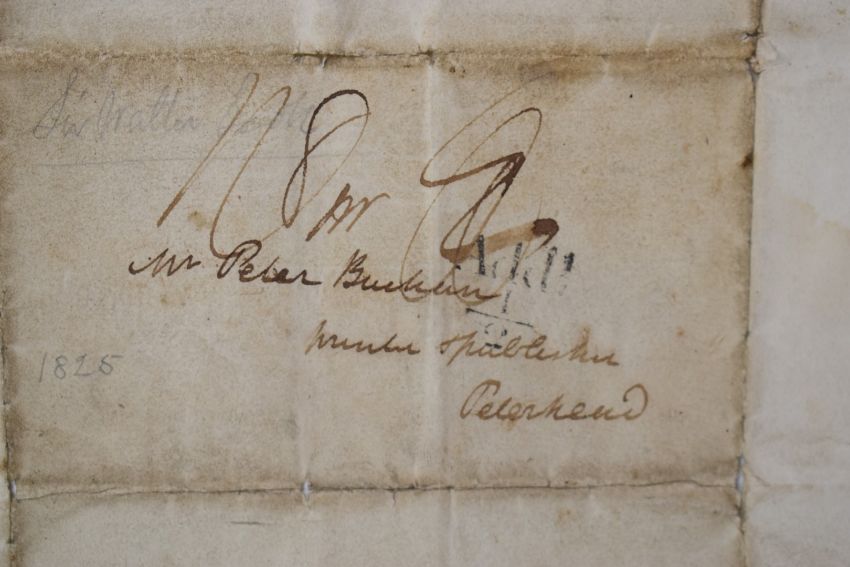 Sir Walter Scott
Mr Peter Buchan
printer & publisher
Peterhead
Addl
1
2
1825